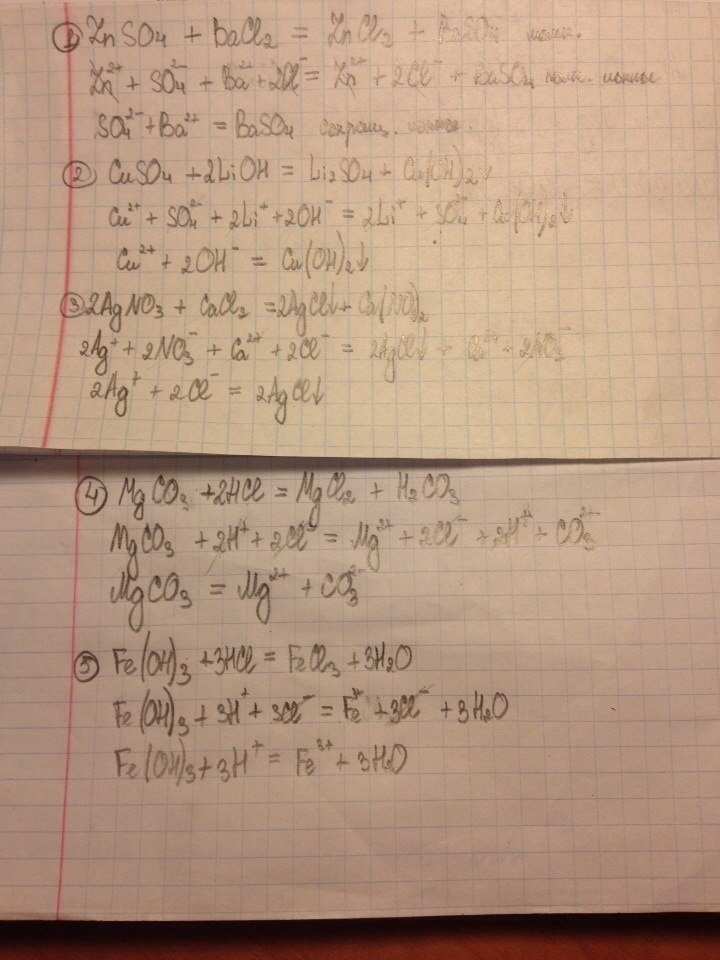 ① ZnSO₄ + BaCl₂ = ZnCl₂ + BaSO₄ молек.
Zn²⁺ + SO₄²⁻ + Ba²⁺ + 2Cl⁻ = Zn²⁺ + 2Cl⁻ + BaSO₄ полн. ионное
SO₄²⁻ + Ba²⁺ = BaSO₄ сокращ. ионное.
② CuSO₄ + 2LiOH = Li₂SO₄ + Cu(OH)₂↓
Cu²⁺ + SO₄²⁻ + 2Li⁺ + 2OH⁻ = 2Li⁺ + SO₄²⁻ + Cu(OH)₂↓
Cu²⁺ + 2OH⁻ = Cu(OH)₂↓
③ 2AgNO₃ + CaCl₂ = 2AgCl↓ + Ca(NO₃)₂
2Ag⁺ + 2NO₃⁻ + Ca²⁺ + 2Cl⁻ = 2AgCl↓ + Ca²⁺ + 2NO₃⁻
2Ag⁺ + 2Cl⁻ = 2AgCl↓
④ MgCO₃ + 2HCl = MgCl₂ + H₂CO₃
MgCO₃ + 2H⁺ + 2Cl⁻ = Mg²⁺ + 2Cl⁻ + 2H⁺ + CO₃²⁻
MgCO₃ = Mg²⁺ + CO₃²⁻
⑤ Fe(OH)₃ + 3HCl = FeCl₃ + 3H₂O
Fe(OH)₃ + 3H⁺ + 3Cl⁻ = Fe³⁺ + 3Cl⁻ + 3H₂O
Fe(OH)₃ + 3H⁺ = Fe³⁺ + 3H₂O